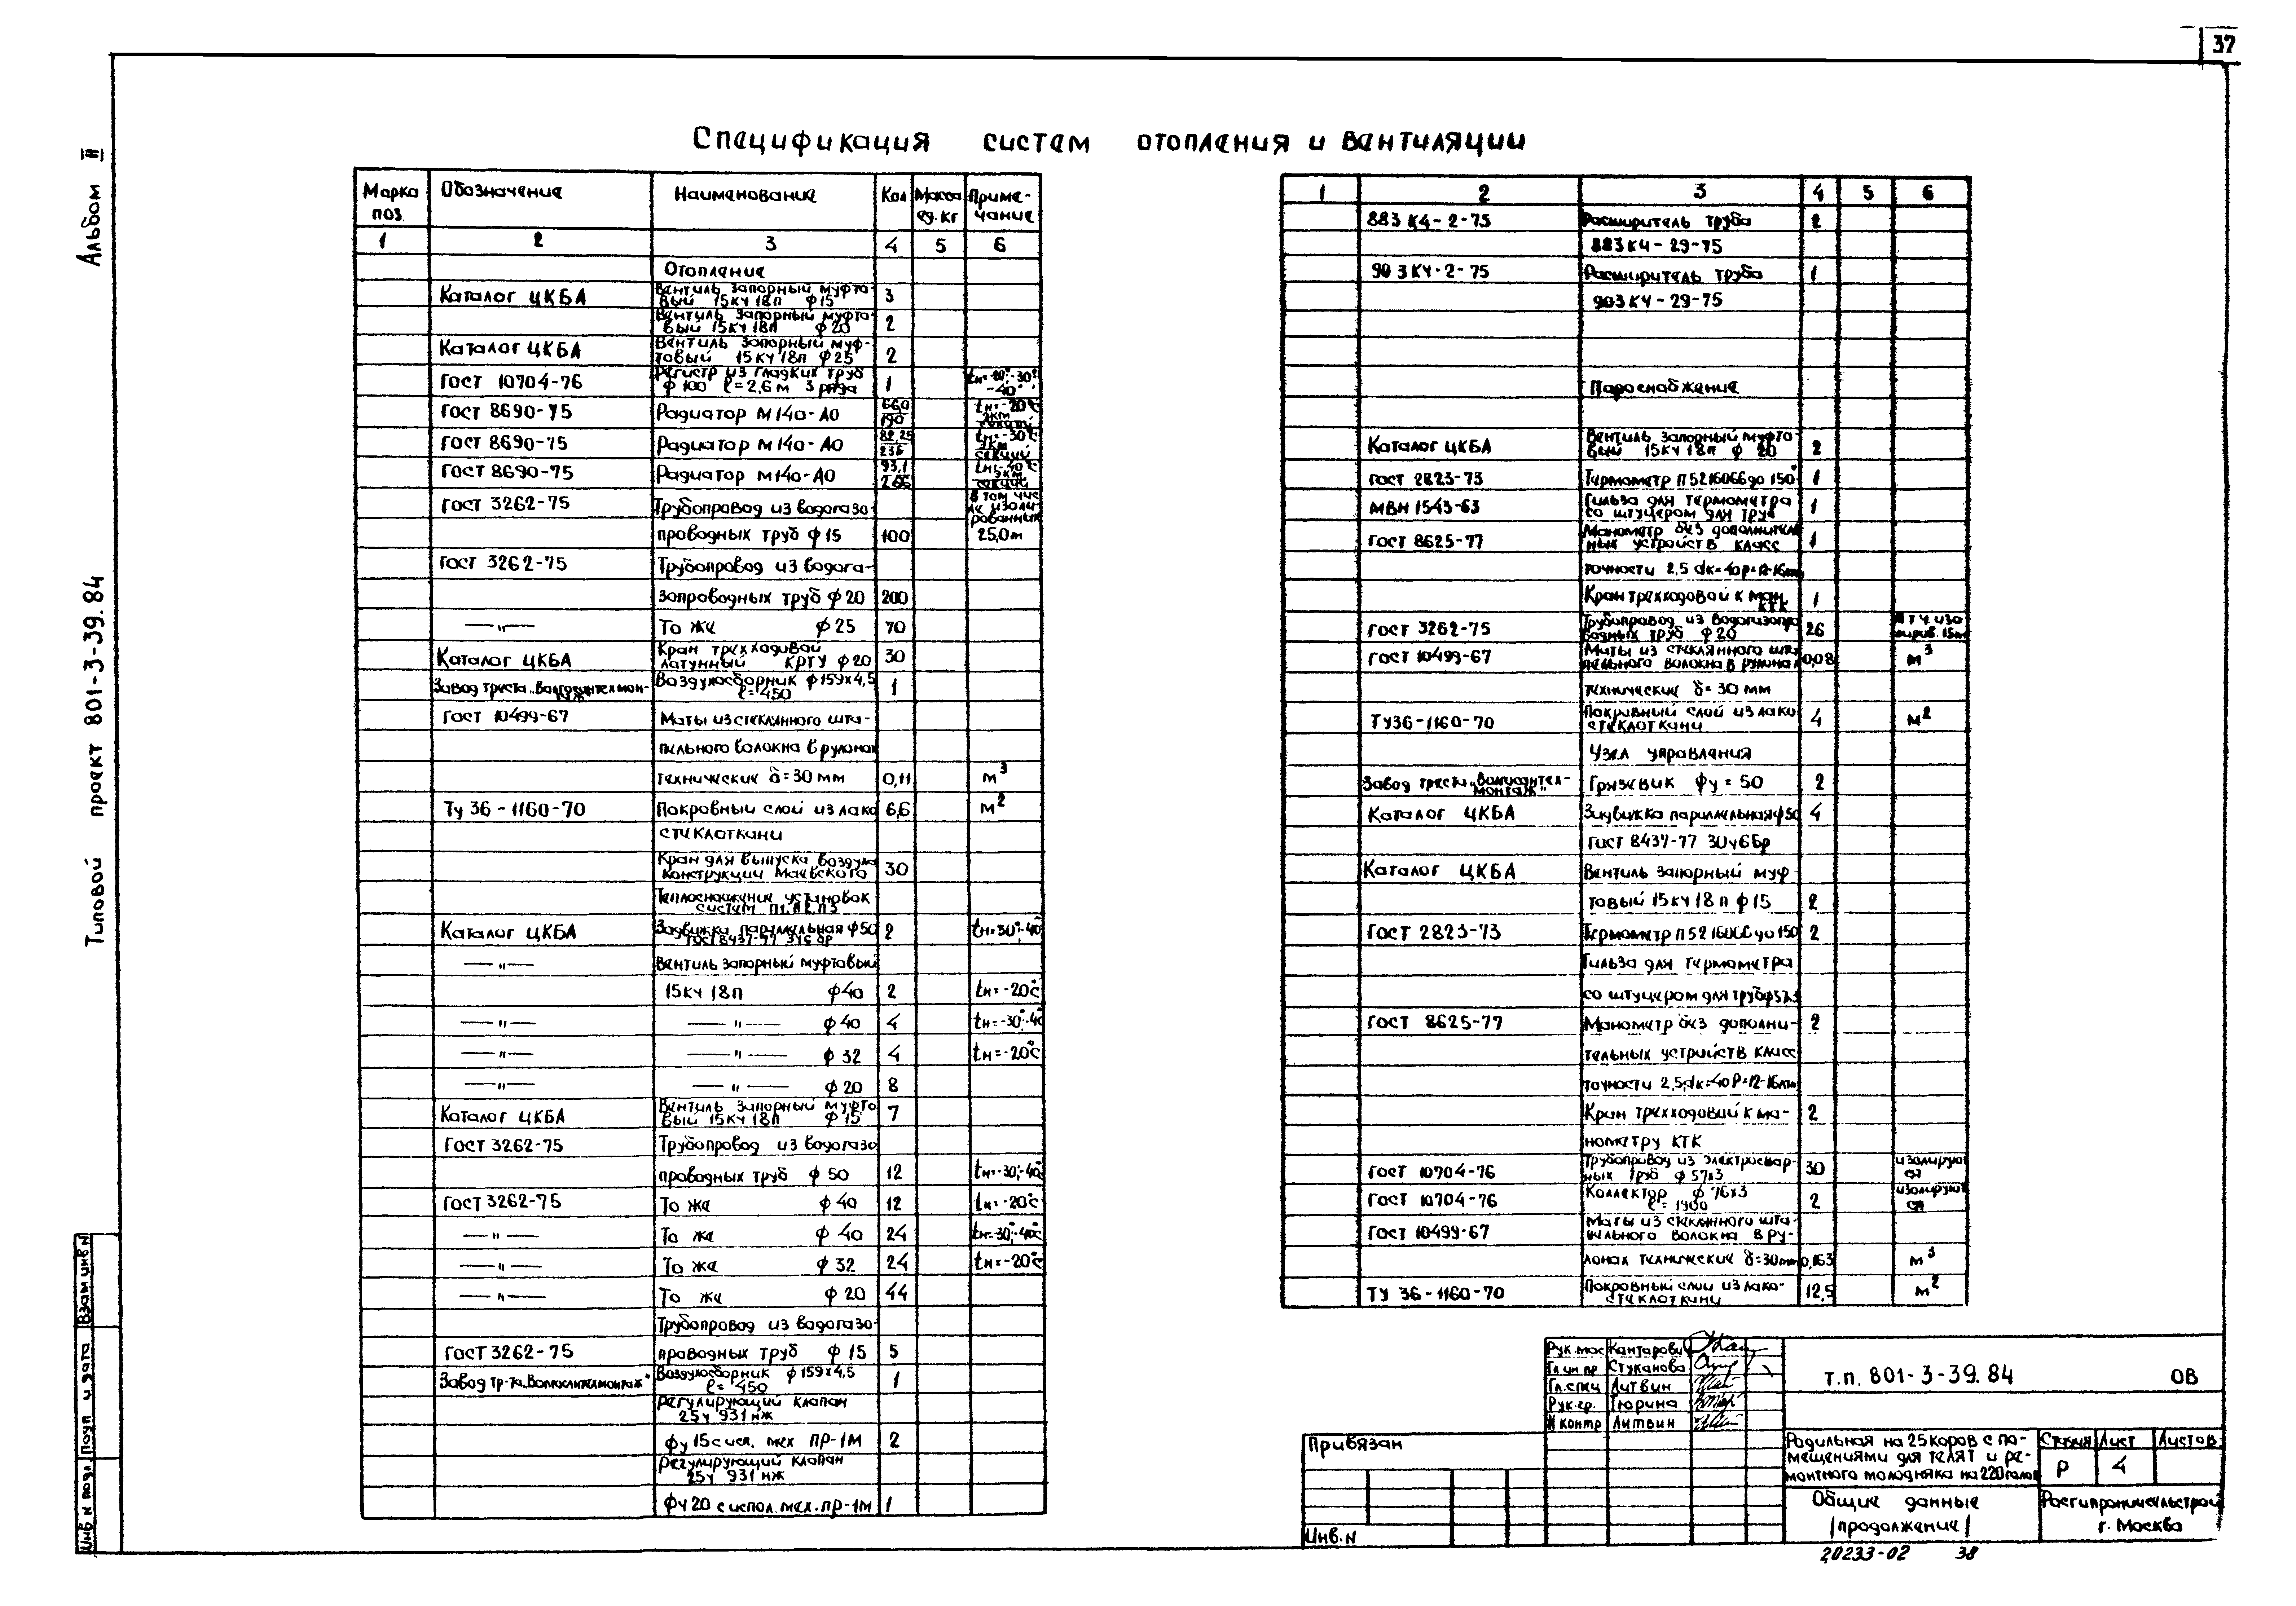 37
Альбом II
Типовой проект 801-3-39.84
Спецификация систем отопления и вентиляции
Марка поз. Обозначение Наименование Кол Масса ед. кг Примечание
1 2 3 4 5 6
Отопление
Каталог ЦКБА Вентиль запорный муфто-
вый 15кч 18п ф15 3
Вентиль запорный муфто-
вый 15кч 18п ф20 2
Каталог ЦКБА Вентиль запорный муф-
товый 15кч 18п ф25 2
Гост 10704-76 Регистр из гладких труб
ф100 ℓ=2,6м 3 ряда 1 tн=-20°;-30°
-40°
Гост 8690-75 Радиатор М140-АО 66,0/190 tн=-20°с экм секций
Гост 8690-75 Радиатор М140-АО 82,25/235 tн=-30°с экм секций
Гост 8690-75 Радиатор М140-АО 93,1/266 tн=-40°с экм секций
Гост 3262-75 Трубопровод из водогазо- В том чис
ле изоли-
рованных
проводных труб ф15 100 25,0м
Гост 3262-75 Трубопровод из водога-
зопроводных труб ф20 200
—"— То же ф25 70
Каталог ЦКБА Кран трехходовой
латунный КРТУ ф20 30
Завод треста "Волгосантехмон-
таж" Воздухосборник ф159х4,5
ℓ=450 1
Гост 10499-67 Маты из стеклянного шта-
пельного волокна в рулонах
технические δ=30мм 0,11 м³
Ту 36-1160-70 Покровный слой из лако 6,6 м²
стеклоткани
Кран для выпуска воздуха
конструкции Маевского 30
Теплоснабжение установок
систем П1,П2,П3
Каталог ЦКБА Задвижка параллельная ф50
Гост 8437-77 2 tн=-30°;-40°
—"— Вентиль запорный муфтовый
15кч 18п ф40 2 tн=-20°с
—"— —"— ф40 4 tн=-30°;-40°
—"— —"— ф32 4 tн=-20°с
—"— —"— ф20 8
Каталог ЦКБА Вентиль запорный муфто
вый 15кч 18п ф15 7
Гост 3262-75 Трубопровод из водогазо
проводных труб ф50 12 tн=-30°;-40°с
Гост 3262-75 То же ф40 12 tн=-20°с
—"— То же ф40 24 tн=-30°;-40°с
—"— То же ф32 24 tн=-20°с
—"— То же ф20 44
Трубопровод из водогазо-
Гост 3262-75 проводных труб ф15 5
Завод тр-та "Волгосантехмонтаж" Воздухосборник ф159х4,5
ℓ=450 1
Регулирующий клапан
25ч 931нж
фу15 с исп. мех ПР-1М 2
Регулирующий клапан
25ч 931нж
фу20 с испол. мех. ПР-1М 1
1 2 3 4 5 6
883 К4-2-75 Расширитель труба 2
883К4-29-75
903К4-2-75 Расширитель труба 1
903К4-29-75
Пароснабжение
Каталог ЦКБА Вентиль запорный муфто-
вый 15кч 18п ф20 2
Гост 2823-73 Термометр П5216066 до 150° 1
МВН 1543-63 Гильза для термометра
со штуцером для труб 1
Гост 8625-77 Манометр без дополнитель
ных устройств класс 1
точности 2,5 dк=40 р=12-16атм
Кран трехходовой к ман.
КТК 1
Гост 3262-75 Трубопровод из водогазопро
водных труб ф20 26 в т.ч. изо
лиров. 15м
Гост 10499-67 Маты из стеклянного шта
пельного волокна в рулонах 0,08 м³
технические δ=30мм
ТУ36-1160-70 Покровный слой из лако
стеклоткани 4 м²
Узел управления
Завод треста "Волгосантех-
монтаж" Грязевик фу=50 2
Каталог ЦКБА Задвижка параллельная ф50 4
Гост 8437-77 30ч6бр
Каталог ЦКБА Вентиль запорный муф-
товый 15кч 18п ф15 2
Гост 2823-73 Термометр П5216066 до 150 2
Гильза для термометра
со штуцером для труб ф57х3
Гост 8625-77 Манометр без дополни- 2
тельных устройств класс
точности 2,5; dк=40 Р=12-16атм
Кран трехходовой к ма- 2
нометру КТК
Гост 10704-76 Трубопровод из электросвар-
ных труб ф57х3 30 изолирует
ся
Гост 10704-76 Коллектор ф76х3
ℓ=1900 2 изолирует
ся
Гост 10499-67 Маты из стеклянного шта-
пельного волокна в ру-
лонах технические δ=30мм 0,163 м³
ТУ 36-1160-70 Покровный слой из лако-
стеклоткани 12,5 м²
Рук. мас Кантарови
Гл. ин пр Стуканова
Гл. спец Литвин
Рук. гр. Тюрина
Н контр Литвин
Т.п. 801-3-39.84 ОВ
Привязан
Инв. N
Родильная на 25 коров с по-
мещениями для телят и ре-
монтного молодняка на 220 голов
Стадия Лист Листов
Р 4
Общие данные
/продолжение/
Росгипронисельстрой
г. Москва
20233-02 38
Взам инв N
Подп и дата
Инв N подл.